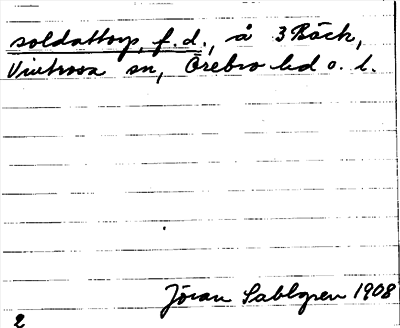 soldattorp, f.d., å 3 Bäck,
Vintrosa sn, Örebro hd o. l.
Jöran Sahlgren 1908
2